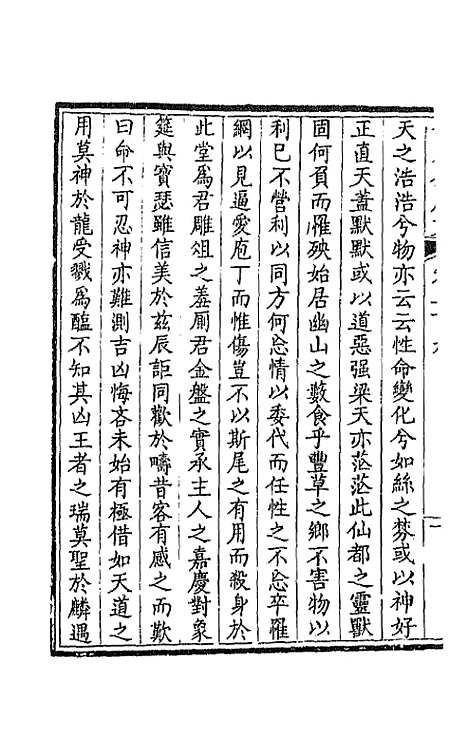 天之浩浩兮物亦云云性命變化兮如絲之棼或以神好
正直天蓋默默或以道惡强梁天亦茫茫此仙都之靈獸
固何負而罹殃始居幽山之藪食乎豐草之鄉不害物以
利己不營利以同方何忘情以委代而任性之不忘卒罹
網以見逼愛庖丁而惟傷豈不以斯尾之有用而殺身於
此堂為君雕俎之羞厠君金盤之實承主人之嘉慶對象
筵與寶瑟雖信美於兹辰詎同歡於疇昔客有感之而歎
曰命不可忍神亦難測吉凶悔吝未始有極借如天道之
用莫神於龍受戮為醢不知其凶王者之瑞莫聖於麟遇